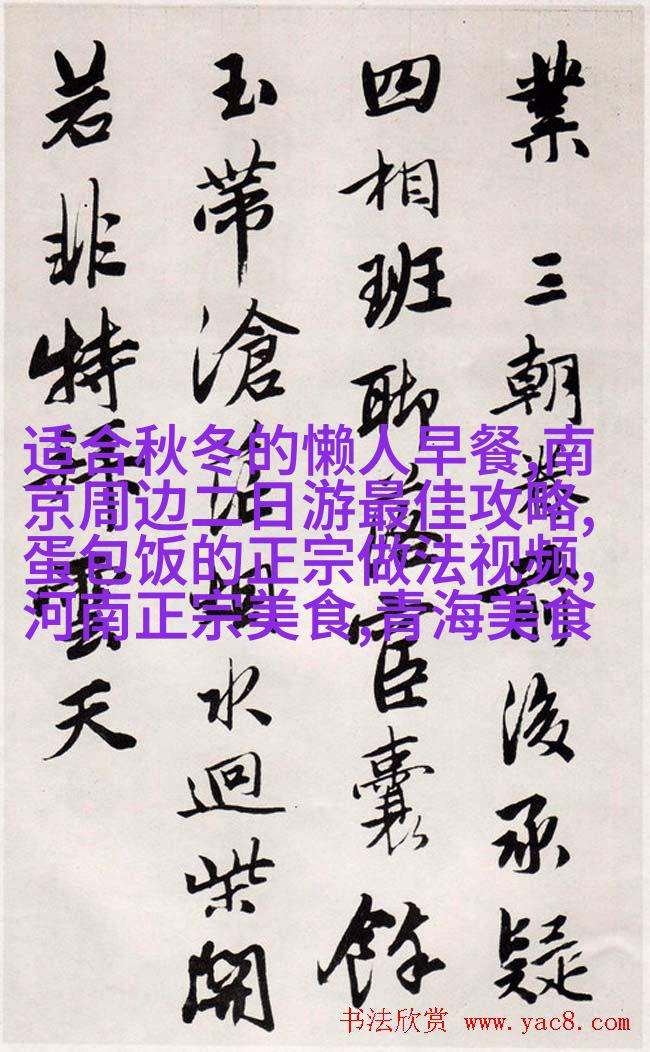 業 三朝 後承疑
四相班聊 宦囊餘
玉帶滄 水迴柴
若非特 雲天
适合秋冬的懒人早餐,南
京周边二日游最佳攻略,
蛋包饭的正宗做法视频,
河南正宗美食,青海美食
书法欣赏 www.yac8.com